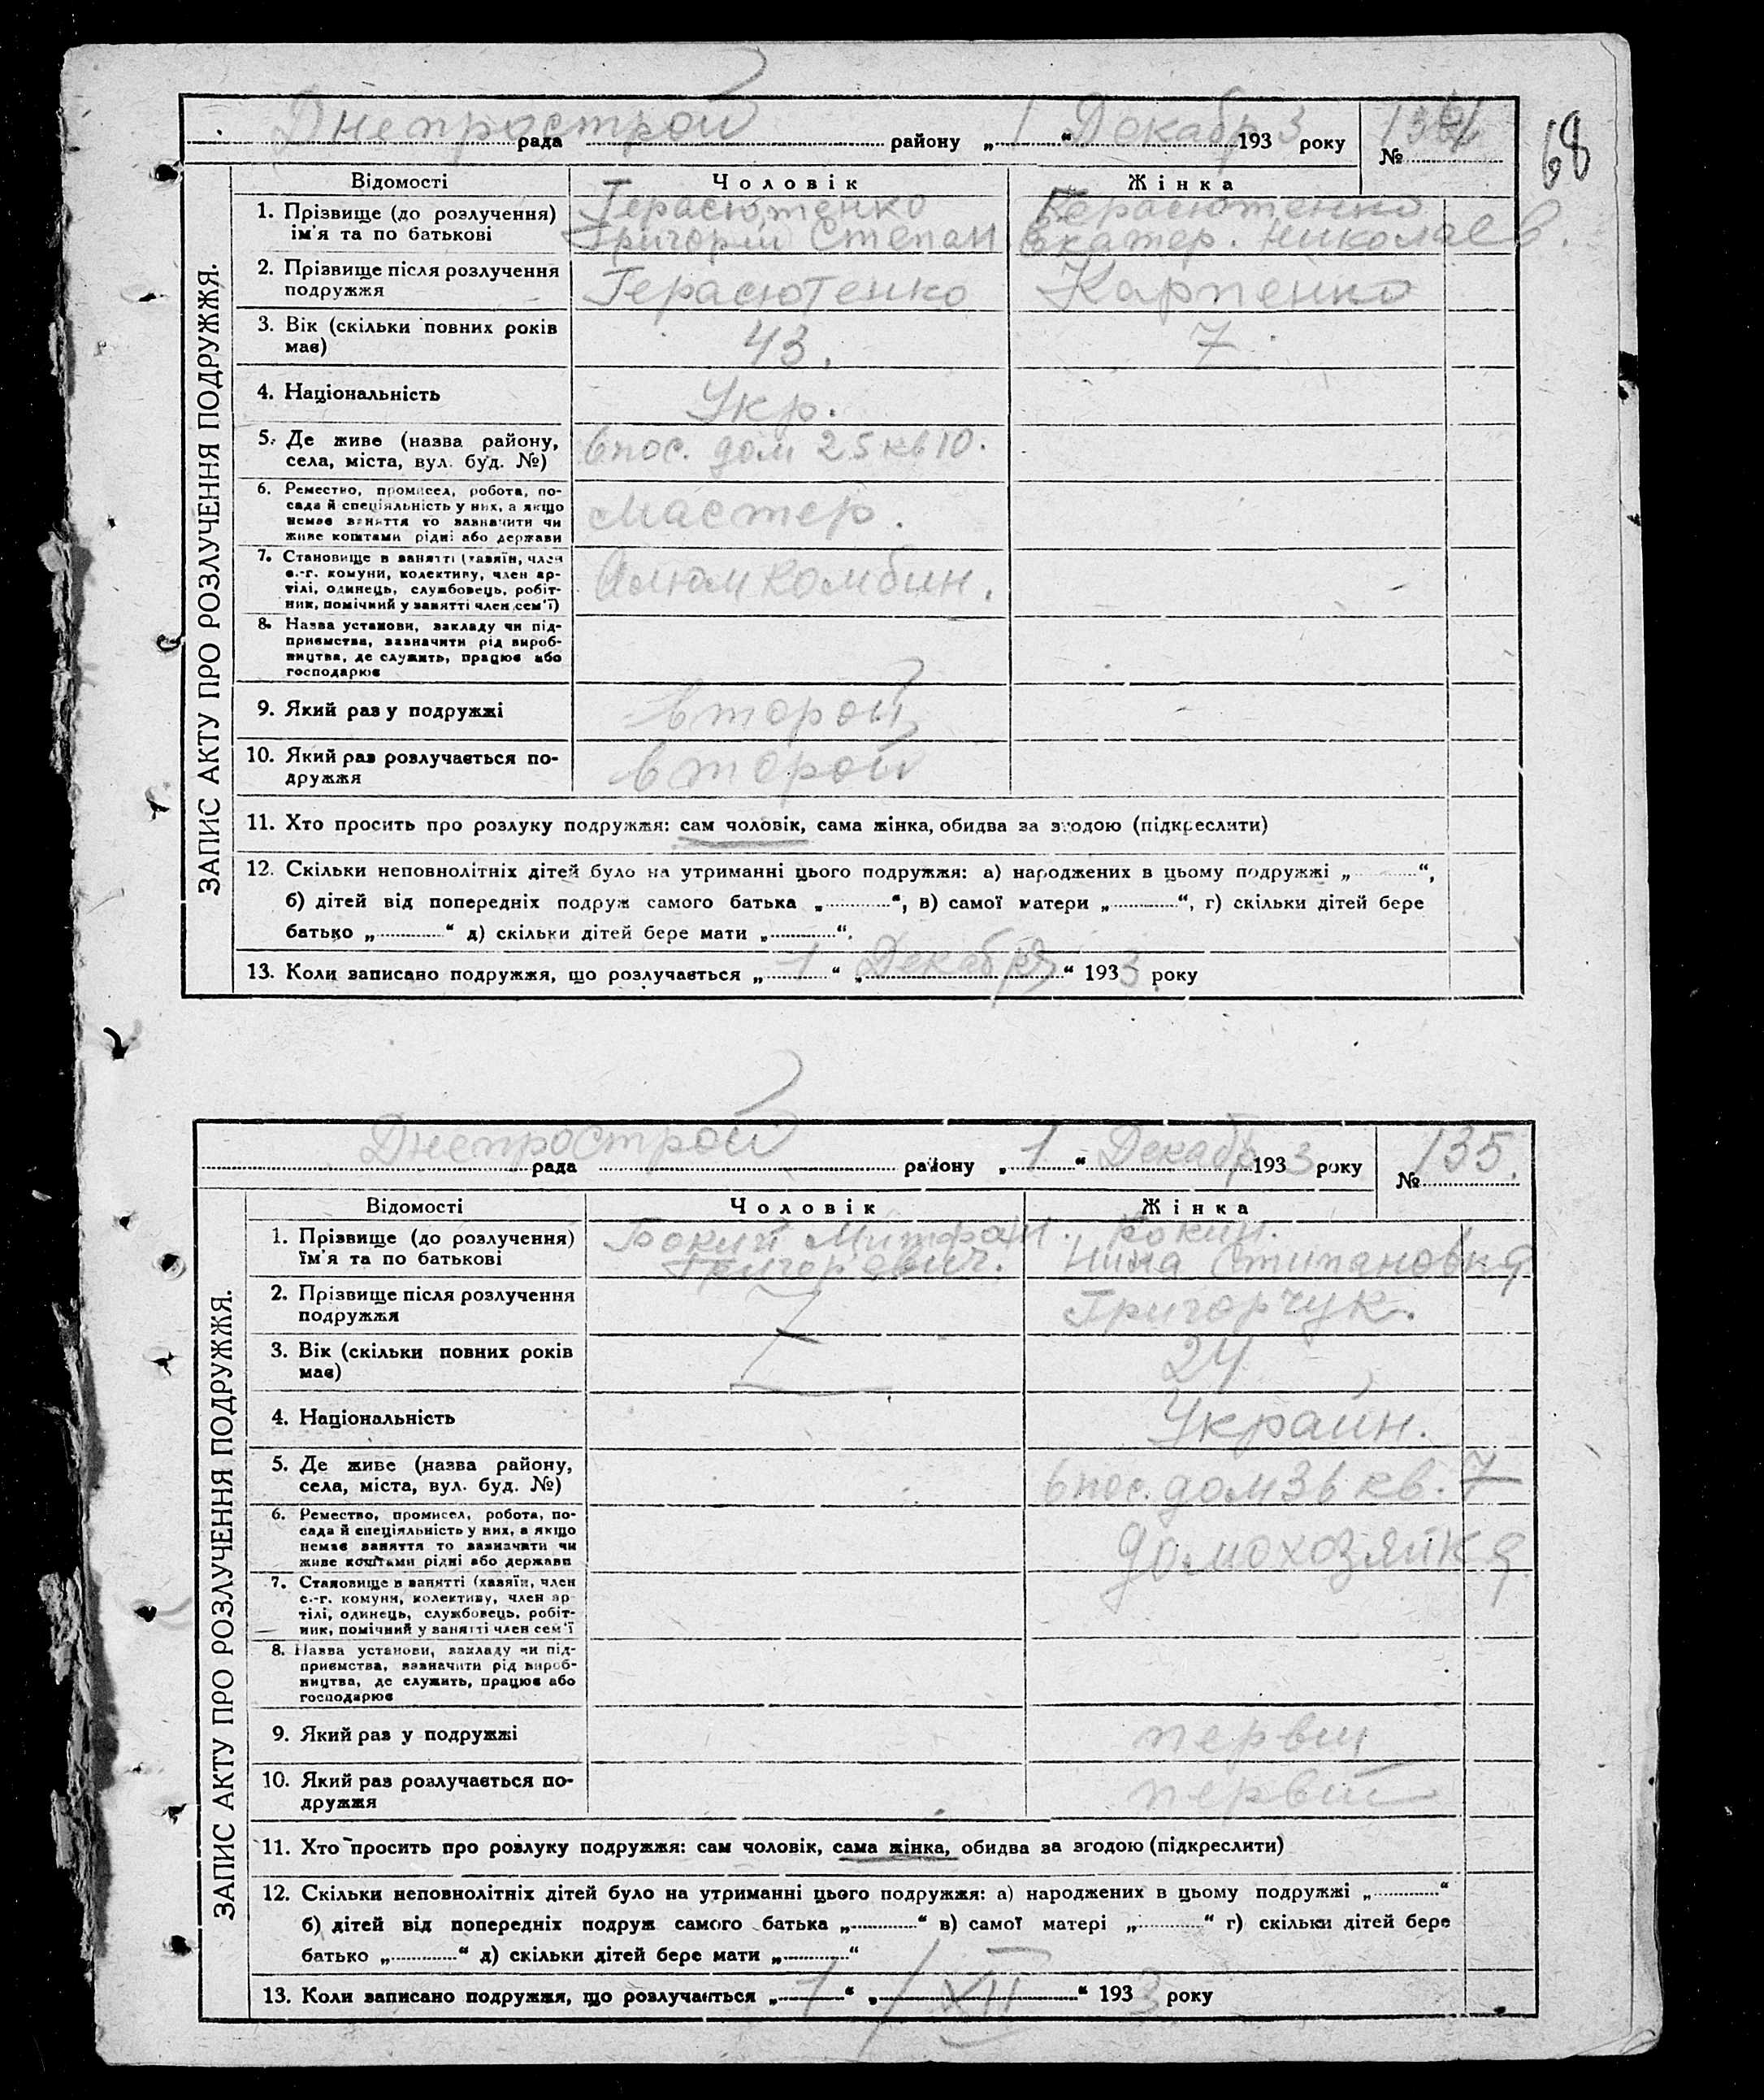 Днепрострой рада району „ 1 “ Декабр 193 3 року № 134
68
ЗАПИС АКТУ ПРО РОЗЛУЧЕННЯ ПОДРУЖЖЯ.
Відомості Чоловік Жінка
1. Прізвище (до розлучення) Герасютенко Герасютенко
ім'я та по батькові Григорий Степан Екатер. Николаев.
2. Прізвище після розлучення
подружжя Герасютенко Карпенко
3. Вік (скільки повних років
має) 43. 7
4. Національність Укр.
5. Де живе (назва району,
села, міста, вул. буд. №) 6 пос. дом 25 кв 10.
6. Ремество, промисел, робота, по-
сада й спеціяльність у них, а якщо
немає заняття то зазначити чи
живе коштами рідні або держави
Мастер.
7. Становище в занятті (хазяїн, член
с.-г. комуни, колективу, член ар-
тілі, одинець, службовець, робіт-
ник, помічний у занятті член сем'ї)
Алюмкомбин.
8. Назва установи, закладу чи під-
приємства, зазначити рід вироб-
ництва, де служить, працює або
господарює
9. Який раз у подружжі второй
10. Який раз розлучається по-
дружжя второй
11. Хто просить про розлуку подружжя: сам чоловік, сама жінка, обидва за згодою (підкреслити)
12. Скільки неповнолітніх дітей було на утриманні цього подружжя: а) народжених в цьому подружжі „ “,
б) дітей від попередніх подруж самого батька „ “, в) самої матери „ “, г) скільки дітей бере
батько „ “ д) скільки дітей бере мати „ “.
13. Коли записано подружжя, що розлучається „ 1 “ „ Декабря “ 193 3 року
Днепрострой рада району „ 1 “ Декабр 193 3 року № 135.
ЗАПИС АКТУ ПРО РОЗЛУЧЕННЯ ПОДРУЖЖЯ.
Відомості Чоловік Жінка
1. Прізвище (до розлучення) Бокий Митрфан. Бокий.
їм'я та по батькові Григоревич. Нина Стипановна
2. Прізвище після розлучення
подружжя Григорчук.
3. Вік (скільки повних років
має) 24
4. Національність Украйн.
5. Де живе (назва району,
села, міста, вул. буд. №) 6 пос. дом 36 кв. 7
6. Ремество, промисел, робота, по-
сада й спеціяльність у них, а якщо
немає заняття то зазначити чи
живе коштами рідні або держави
домохозяйка
7. Становище в занятті (хазяїн, член
с.-г. комуни, колективу, член ар-
тілі, одинець, службовець, робіт-
ник, помічний у занятті член сем'ї
8. Назва установи, закладу чи під-
приємства, зазначити рід вироб-
ництва, де служить, працює або
господарює
9. Який раз у подружжі первий
10. Який раз розлучається по-
дружжя первий
11. Хто просить про розлуку подружжя: сам чоловік, сама жінка, обидва за згодою (підкреслити)
12. Скільки неповнолітніх дітей було на утриманні цього подружжя: а) народжених в цьому подружжі „ “
б) дітей від попередніх подруж самого батька „ “ в) самої матері „ “ г) скільки дітей бере
батько „ “ д) скільки дітей бере мати „ “
13. Коли записано подружжя, що розлучається „ 1 “ / „ XII “ 193 3 року